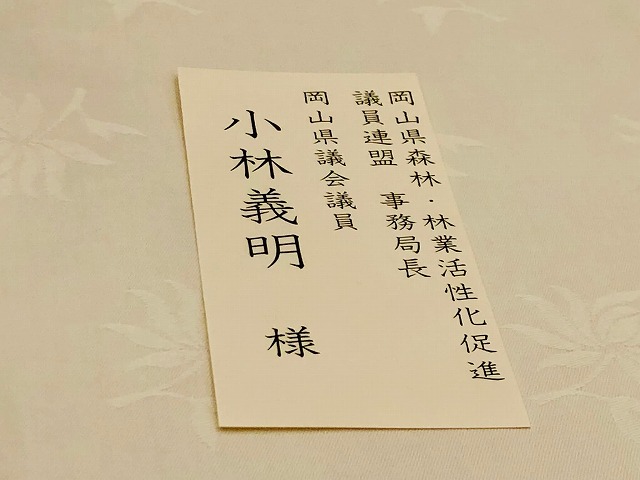 岡山県森林・林業活性化促進
議員連盟 事務局長
岡山県議会議員
小林義明 様